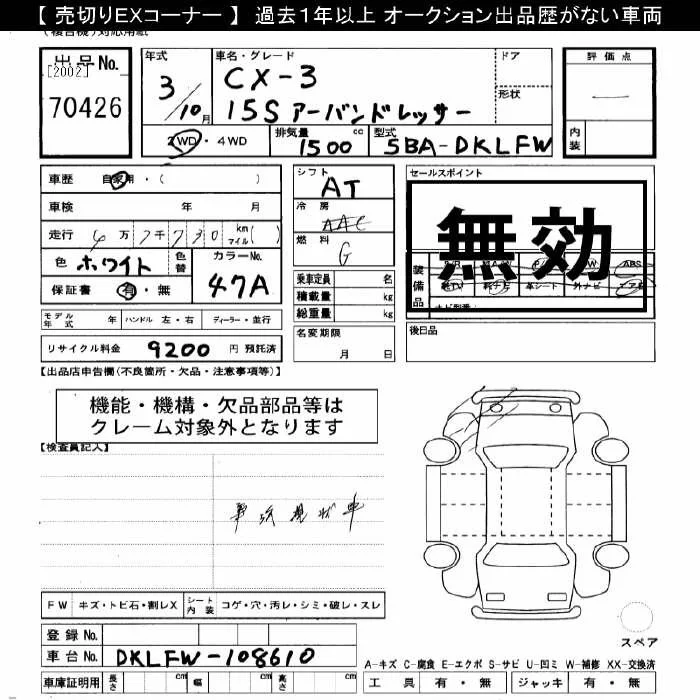 【 売切りEXコーナー 】 過去1年以上 オークション出品歴がない車両
(複合機)対応用紙
出品No.
[2002]
70426
年式
3/10月
車名・グレード
CX-3
15S アーバンドレッサー
ドア
形状
評価点
—
内装
2WD ・ 4WD
排気量 1500 cc
型式 5BA-DKLFW
車歴 自家用・( )
車検 年 月
走行 4万7千730 km マイル( )
色 ホワイト 色替
カラーNo. 47A
保証書 有・無
シフト AT
冷房 AAC
燃料 G
乗車定員 名
積載量 kg
総重量 kg
セールスポイント
無効
装備品
S/R P/S P/W ABS
純TV 純ナビ 革シート 外ナビ エアB
ナビ型番( )
モデル年式 年
ハンドル 左・右
ディーラー・並行
名変期限 月 日
後日品
リサイクル料金 9200 円 預託済
【出品店申告欄(不良箇所・欠品・注意事項等)】
機能・機構・欠品部品等は
クレーム対象外となります
【検査員記入】
事故現状車
FW キズ・トビ石・割レX
シート内装 コゲ・穴・汚レ・シミ・破レ・スレ
スペア
登録No.
車台No. DKLFW-108610
A-キズ C-腐食 E-エクボ S-サビ U-凹ミ W-補修 XX-交換済
車庫証明用 長さ cm 幅 cm 高さ cm
工具 有・無 ジャッキ 有・無